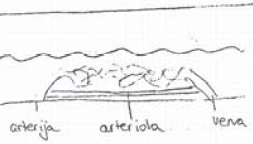 arterija arteriola vena